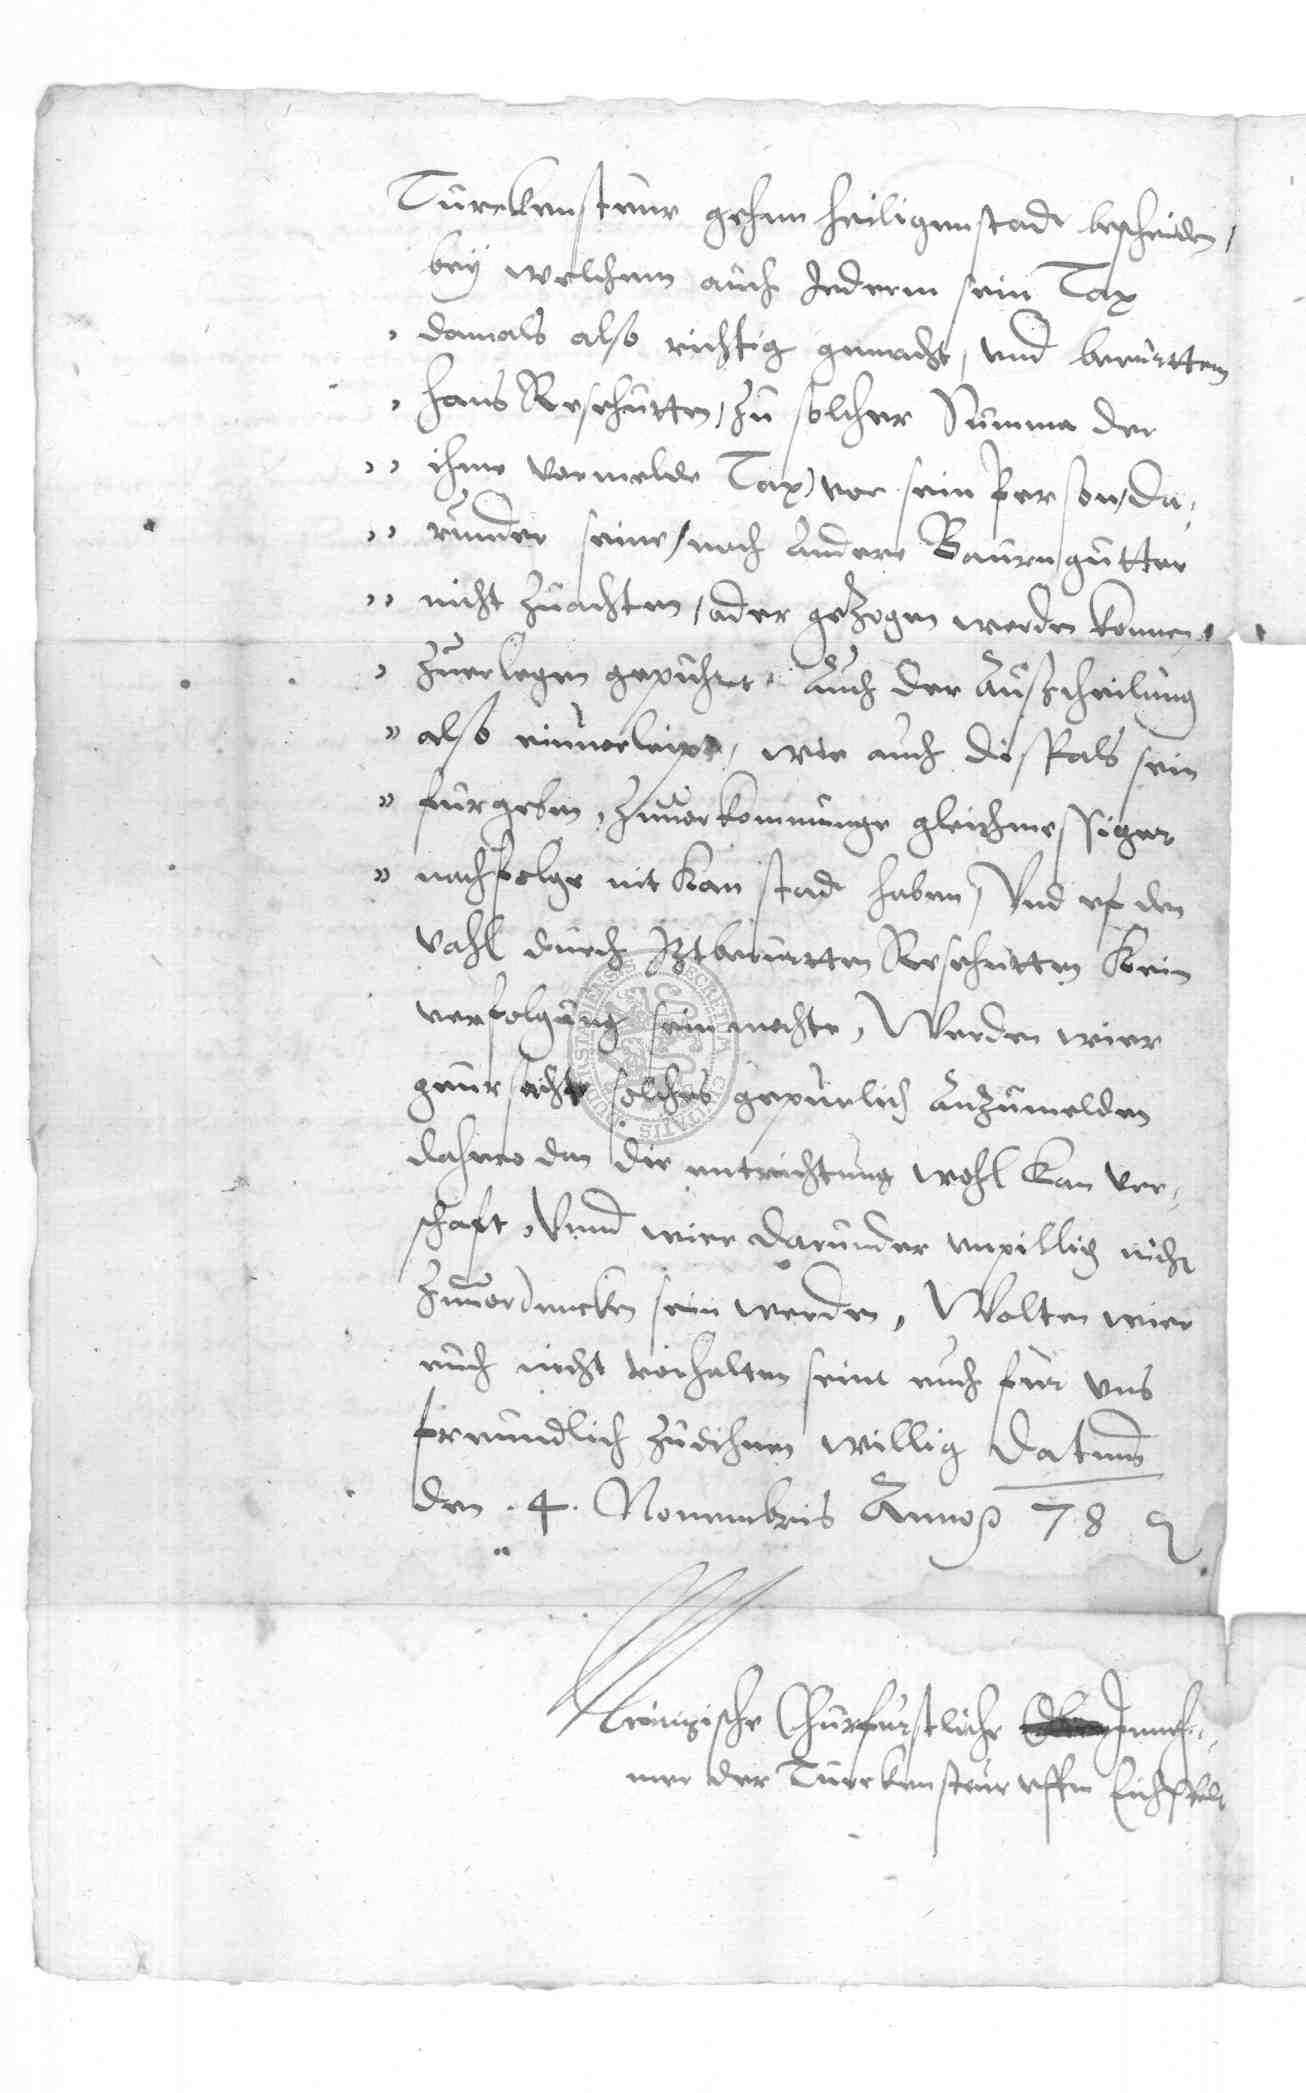 Turckensteur gehen Heiligenstadt bescheiden,
bey welchem auch Jederm sein Tax
damals also richtig gemacht, vnd berurttem
Hans Reschutten, zu solcher Summa der
ihme vermelde Tax, vor sein Person, da-
runder seine, noch andere Baurngutter
nicht zuachten, oder gezogen werden konnen,
zuerlegen gepuhret. Auch der Außtheilung
also einuerleipt, wie auch disfals sein
furgeben, zuuorkommunge gleichmessiger
nachfolge nit kan stadt haben, Vnd vf den
vahl durch Itztberurtten Reschutten kein
verfolgung sein mochte, Werden wier
geursacht solches gepurlich anzumelden
dahero dan die entrichtung wohl kan ver-
schaft, Vnnd wier darunder vnpillich nicht
zuuordencken sein werden, Wolten wier
euch nicht vorhalten seint euch fur vns
freundlich zudihnen willig Datum
den .4. Nouembris Anno 78
Meintzische Churfurstliche Einneh-
mer der Turckensteur vffm Eichsfeldt
SECRETUM CIVITATIS DUDERSTATENSIS